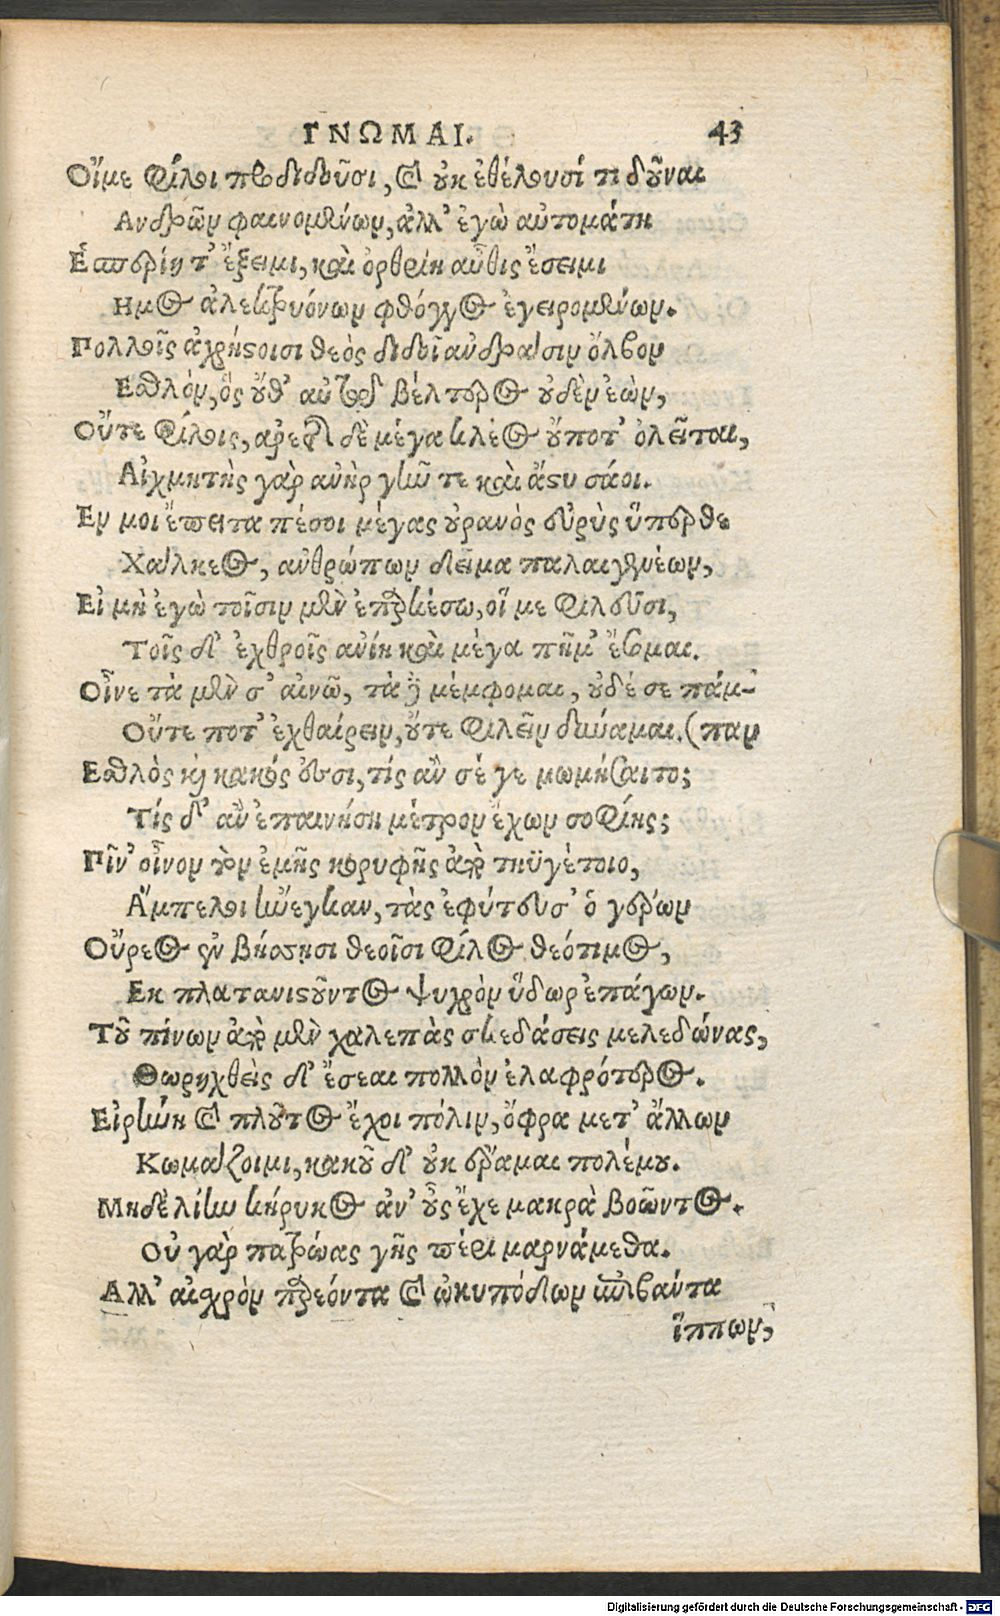 ΓΝΩΜΑΙ. 43
Οἵμε φίλοι προδιδοῦσι, καὶ οὐκ ἐθέλουσί τι δοῦναι
Ανδρῶν φαινομένων, ἀλλ' ἐγὼ αὐτομάτη
Εσπερίη τ' ἔξειμι, καὶ ὀρθρίη αὖθις ἔσειμι
Ημος ἀλεκτρυόνων φθόγγος ἐγειρομένων.
Πολλοῖς ἀχρήστοισι θεὸς διδοῖ ἀνδράσιν ὄλβον
Εσθλὸν, ὃς οὔθ' αὑτοῦ βέλτερος οὐδὲν ἐὼν,
Οὔτε φίλοις, ἀρετῆς δὲ μέγα κλέος οὔποτ' ὀλεῖται,
Αἰχμητὴς γὰρ ἀνὴρ γῆν τε καὶ ἄστυ σάοι.
Εν μοι ἔπειτα πέσοι μέγας οὐρανὸς εὐρὺς ὕπερθε
Χάλκεος, ἀνθρώπων δεῖμα παλαιγενέων,
Εἰ μὴ ἐγὼ τοῖσιν μὲν ἐπαρκέσω, οἵ με φιλεῦσι,
Τοῖς δ' ἐχθροῖς ἀνίη καὶ μέγα πῆμ' ἔσομαι.
Οἶνε τὰ μὲν σ' αἰνῶ, τὰ δὲ μέμφομαι, οὐδέ σε πάμ-
Οὔτε ποτ' ἐχθαίρειν, οὔτε φιλεῖν δύναμαι. (παν
Εσθλὸς καὶ κακός ἐσσι, τίς ἂν σέ γε μωμήσαιτο;
Τίς δ' ἂν ἐπαινήσῃ μέτρον ἔχων σοφίης;
Πῖν' οἶνον τὸν ἐμῆς κορυφῆς ἀπὸ τηϋγέτοιο,
Ἄμπελοι ἤνεγκαν, τὰς ἐφύτευσ' ὁ γέρων
Οὔρεος ἐν βήσσῃσι θεοῖσι φίλος θεότιμος,
Εκ πλατανιστοῦντος ψυχρὸν ὕδωρ ἐπάγων.
Τοῦ πίνων ἀπὸ μὲν χαλεπὰς σκεδάσεις μελεδώνας,
Θωρηχθεὶς δ' ἔσεαι πολλὸν ἐλαφρότερος.
Εἰρήνη καὶ πλοῦτος ἔχοι πόλιν, ὄφρα μετ' ἄλλων
Κωμάζοιμι, κακοῦ δ' οὐκ ἔραμαι πολέμου.
Μηδὲ λίην κήρυκος ἀν' οὖς ἔχε μακρὰ βοῶντος.
Οὐ γὰρ πατρώας γῆς πέρι μαρνάμεθα.
Αλλ' αἰσχρὸν παρεόντα καὶ ὠκυπόδων ἐπιβάντα
ἵππων,
Digitalisierung gefördert durch die Deutsche Forschungsgemeinschaft - DFG